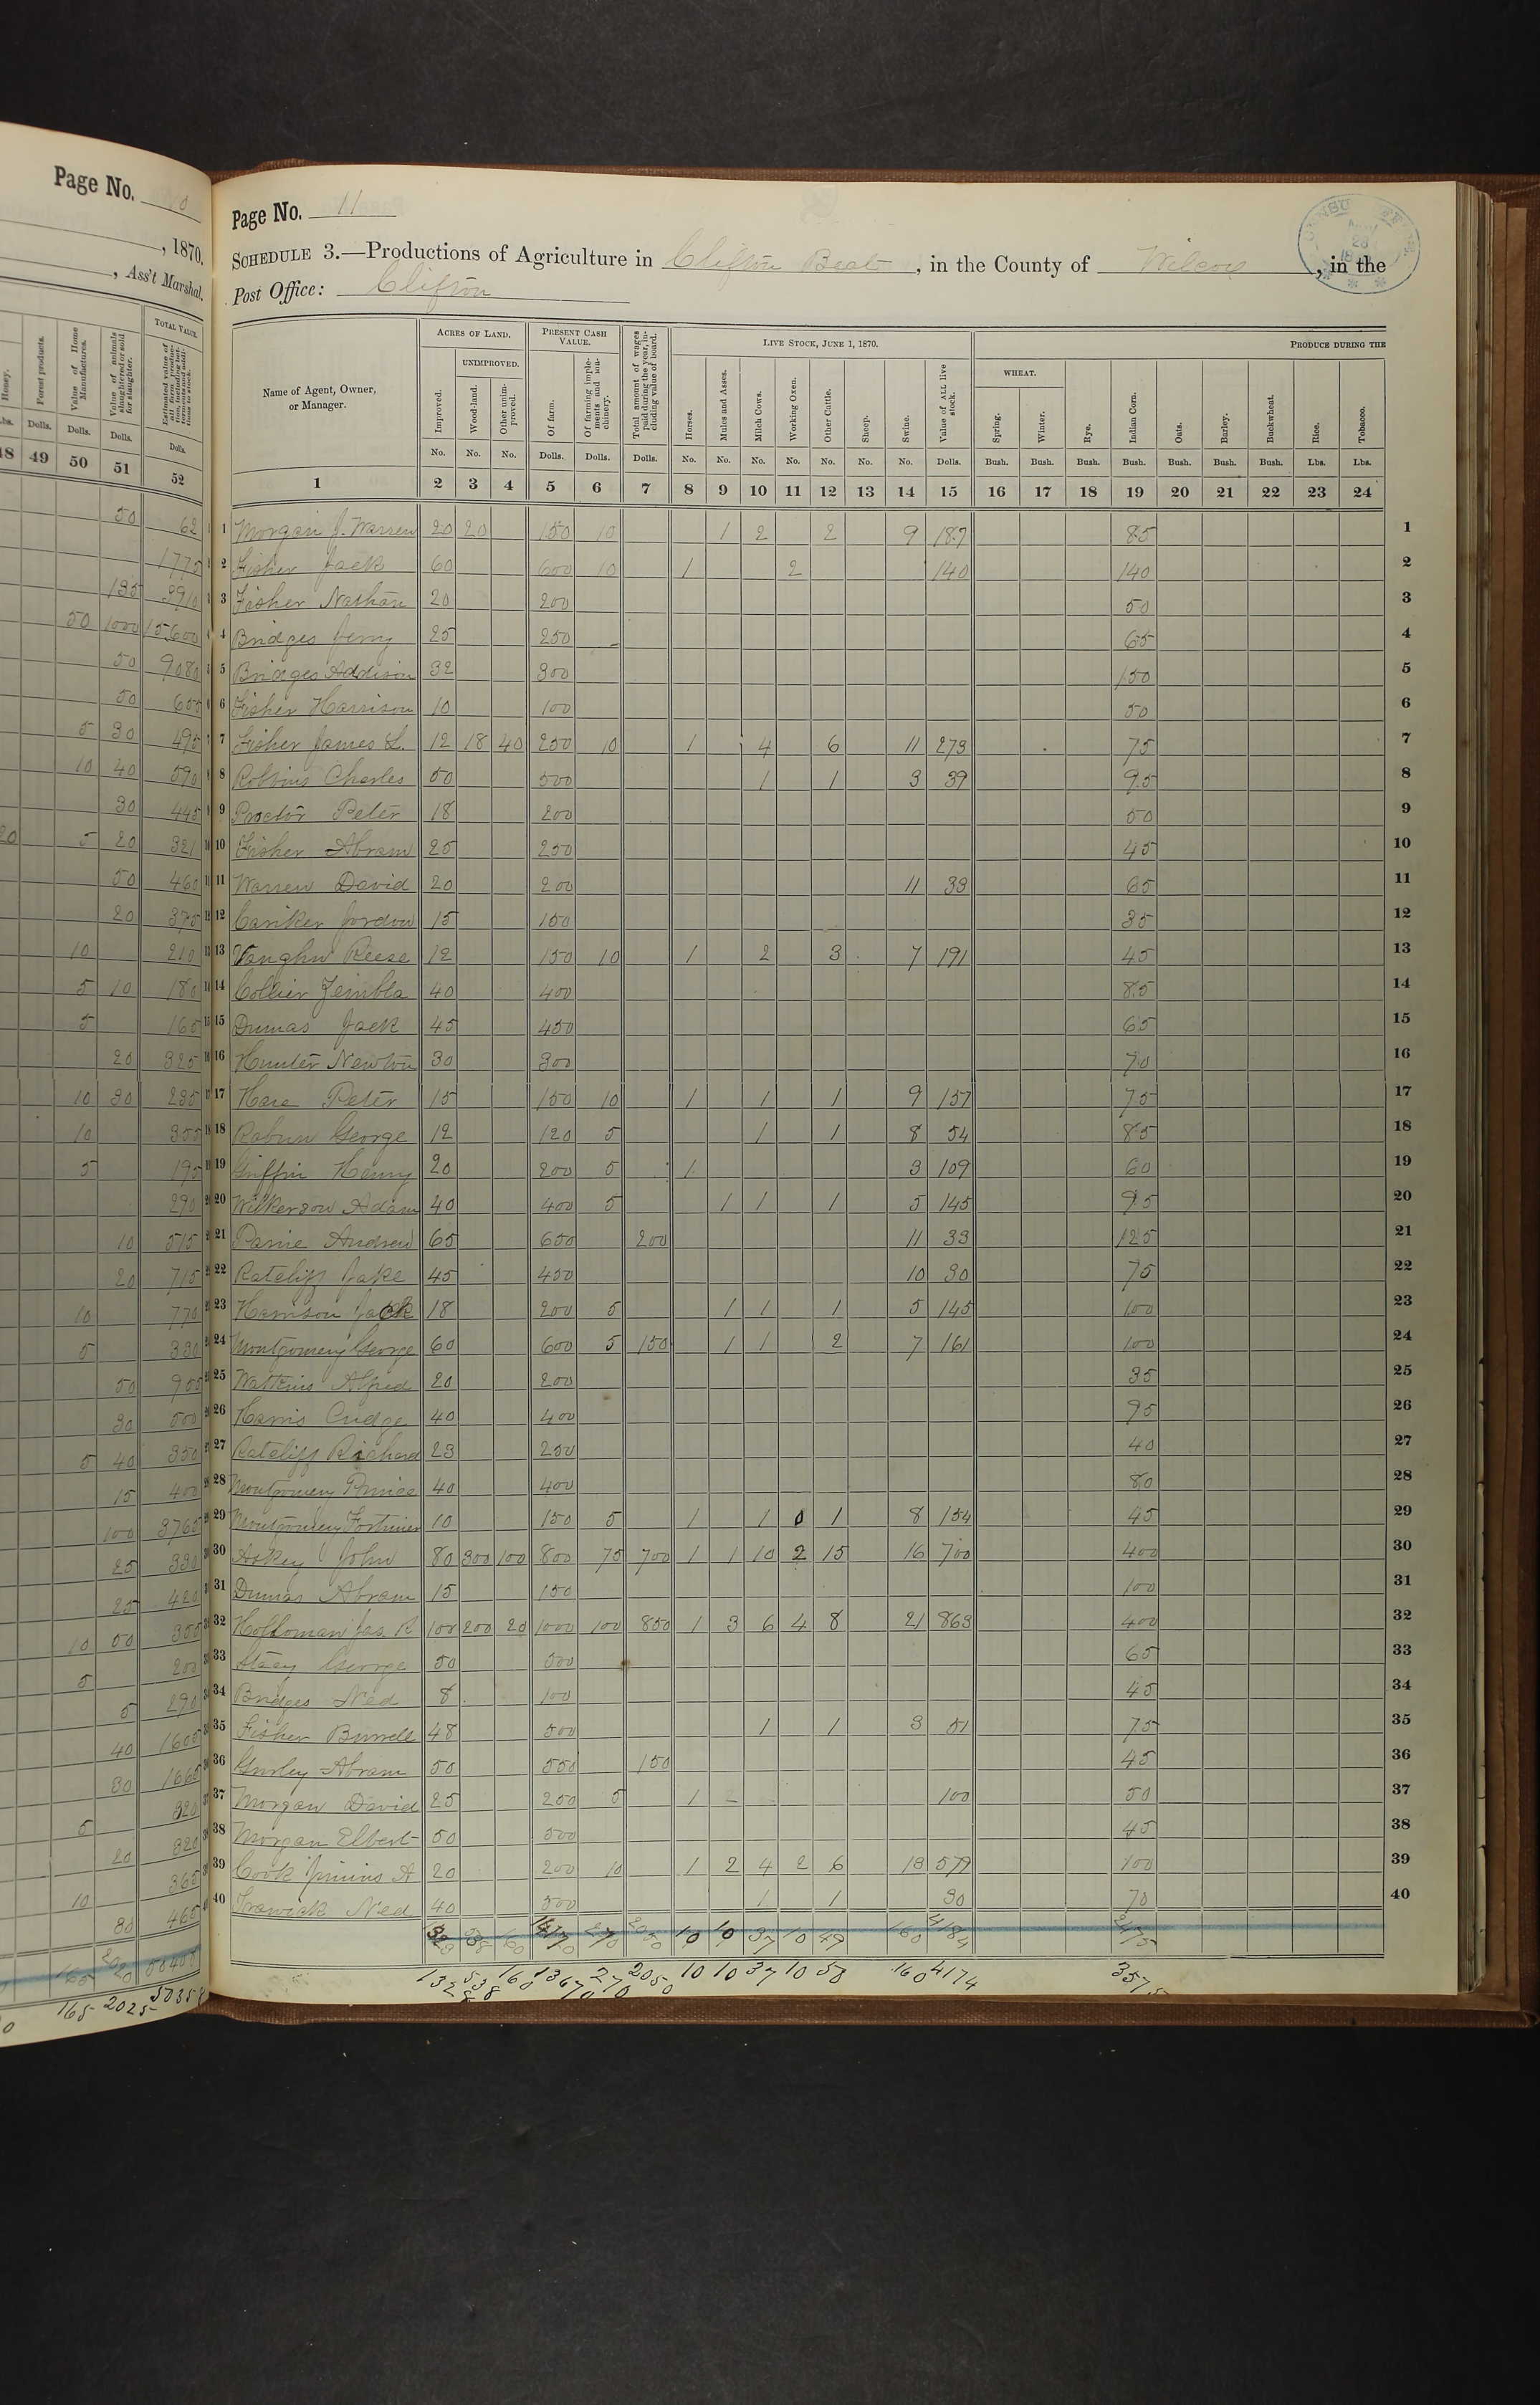 Page No.
, 1870.
, Ass't Marshal.
TOTAL VALUE.
Honey.
Forest products.
Value of Home Manufactures.
Value of animals slaughtered or sold for slaughter.
Estimated value of all farm production, including betterments and additions to stock.
Lbs. Dolls. Dolls. Dolls. Dolls.
18 49 50 51 52
50 62
1775
135 3910
50 1000 15,600
50 9080
50 655
5 30 495
10 40 590
30 445
20 5 20 321
50 460
20 375
10 210
5 10 180
5 160
20 325
10 30 235
10 355
5 195
290
10 515
20 715
10 770
5 330
50 905
30 500
5 40 350
15 400
100 3765
25 330
25 420
10 50 355
5 200
5 290
40 1605
80 1665
5 320
20 320
10 365
80 465
165 2025 50358
Page No. 11
SCHEDULE 3.—Productions of Agriculture in Clifton Beat, in the County of Wilcox, in the
Post Office: Clifton
Name of Agent, Owner, or Manager.
ACRES OF LAND.
UNIMPROVED.
Improved.
Wood-land.
Other unimproved.
PRESENT CASH VALUE.
Of farm.
Of farming implements and machinery.
Total amount of wages paid during the year, including value of board.
LIVE STOCK, JUNE 1, 1870.
Horses.
Mules and Asses.
Milch Cows.
Working Oxen.
Other Cattle.
Sheep.
Swine.
Value of ALL live stock.
PRODUCE DURING THE
WHEAT.
Spring.
Winter.
Rye.
Indian Corn.
Oats.
Barley.
Buckwheat.
Rice.
Tobacco.
No. No. No. Dolls. Dolls. Dolls. No. No. No. No. No. No. No. Dolls. Bush. Bush. Bush. Bush. Bush. Bush. Bush. Lbs. Lbs.
1 2 3 4 5 6 7 8 9 10 11 12 13 14 15 16 17 18 19 20 21 22 23 24
1 Morgan J. Warren 20 20 150 10 1 2 2 9 187 85 1
2 Fisher Jack 60 600 10 1 2 140 140 2
3 Fisher Nathan 20 200 50 3
4 Bridges Jerry 25 250 65 4
5 Bridges Addison 32 300 150 5
6 Fisher Harrison 10 100 50 6
7 Fisher James L. 12 18 40 250 10 1 4 6 11 273 75 7
8 Robbins Charles 50 500 1 1 3 39 95 8
9 Proctor Peter 18 200 50 9
10 Fisher Abram 25 250 45 10
11 Warren David 20 200 11 33 65 11
12 Cariker Jordon 15 150 35 12
13 Vaughn Reese 12 150 10 1 2 3 7 191 45 13
14 Collier Zembla 40 400 85 14
15 Dumas Jack 45 450 65 15
16 Hunter Newton 30 300 70 16
17 Hare Peter 15 150 10 1 1 1 9 157 75 17
18 Raburn George 12 120 5 1 1 8 54 85 18
19 Griffin Henry 20 200 5 1 3 109 60 19
20 Wilkerson Adam 40 400 5 1 1 1 5 145 95 20
21 Andrew 65 650 200 11 33 125 21
22 Ratcliff Jake 45 450 10 30 75 22
23 Harrison Jack 18 200 5 1 1 1 5 145 100 23
24 Montgomery George 60 600 5 150 1 1 2 7 161 100 24
25 Watkins Alfred 20 200 35 25
26 Harris Cudge 40 400 95 26
27 Ratcliff Richard 23 250 40 27
28 Montgomery Prince 40 400 80 28
29 Montgomery 10 150 5 1 1 0 1 8 154 45 29
30 Askey John 80 300 100 800 75 700 1 1 10 2 15 16 700 400 30
31 Dumas Abram 15 150 100 31
32 Holloman Jas. R 100 200 20 1000 100 850 1 3 6 4 8 21 863 400 32
33 Stacy George 50 500 65 33
34 Bridges Ned 8 100 45 34
35 Fisher Burrell 48 500 1 1 3 51 75 35
36 Gurley Abram 50 550 150 45 36
37 Morgan David 25 250 5 1 100 50 37
38 Morgan Elbert 50 500 45 38
39 Cook Junius A 20 200 10 1 2 4 2 6 13 579 100 39
40 Trawick Ned 40 500 1 1 30 70 40
10 10 37 10 49 160 4184
1328 538 160 13670 270 2050 10 10 37 10 58 160 4174 3575